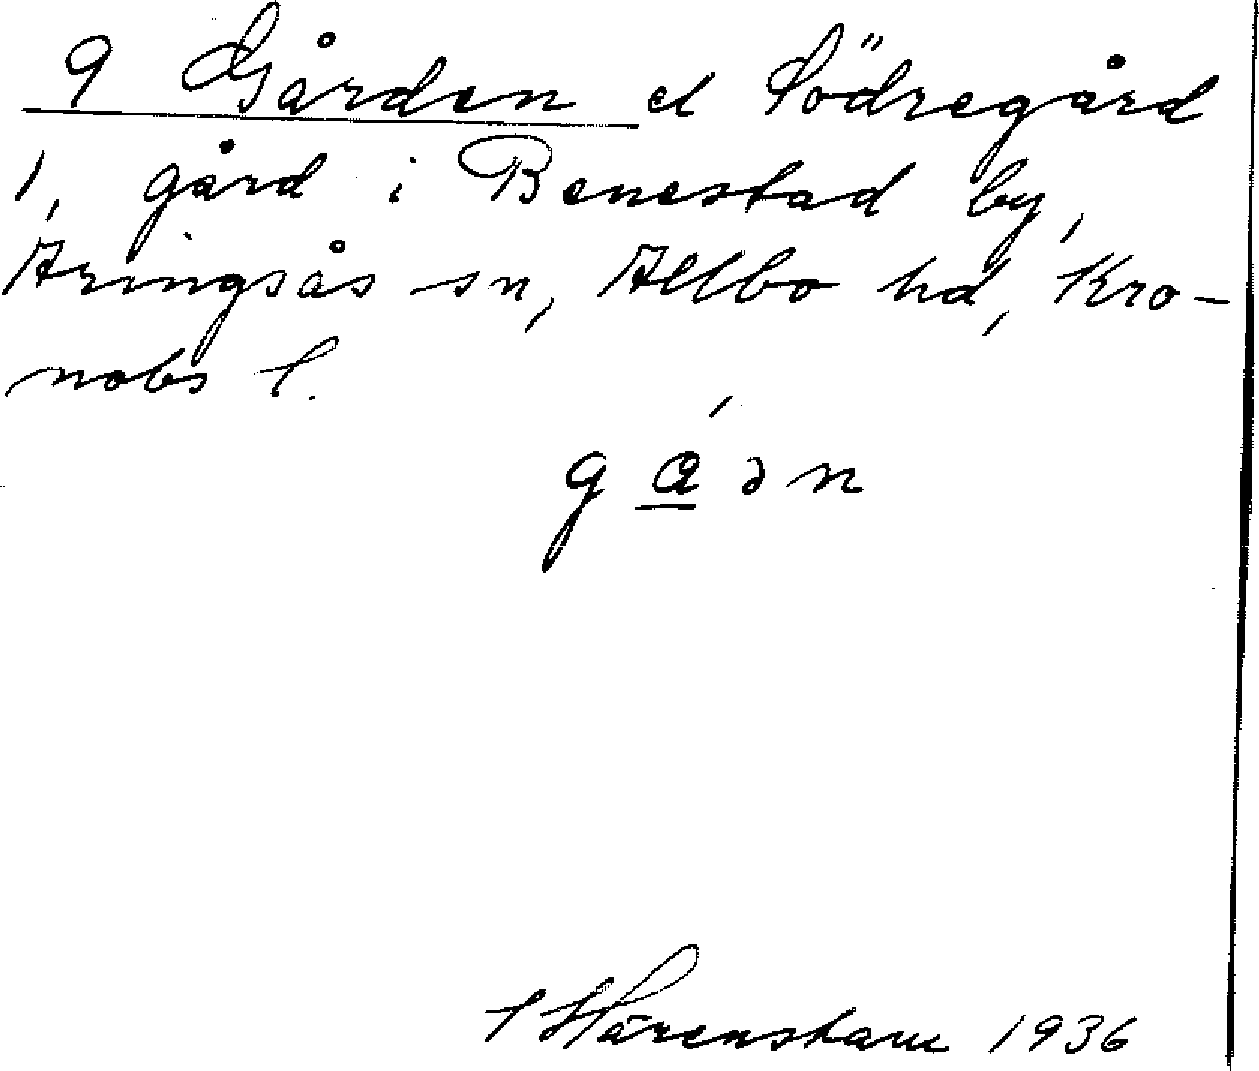 9 Gården el Södregård
1, gård i Benestad by,
Aringsås sn, Allbo hd, Kro-
nobs l.
g a̲ ́ ə n
Härenstam 1936